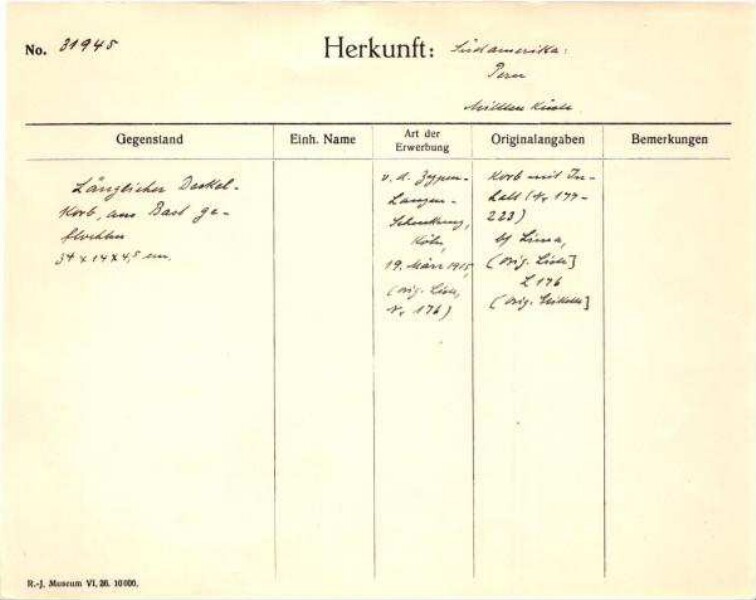 No. 31945
Herkunft: Südamerika:
Peru
Mittlere Küste
Gegenstand
Einh. Name
Art der
Erwerbung
Originalangaben
Bemerkungen
Länglicher Deckel-
korb, aus Bast ge-
flochten
34 x 14 x 4,5 cm.
v. d. Zypen-
Langen-
Schenkung,
Köln,
19. März 1915,
(orig. Liste,
Nr. 176)
Korb mit In-
halt (Nr. 177-
223)
bei Lima,
(orig. Liste]
L 176
(orig. Etikette]
R.-J. Museum VI. 26. 10000.